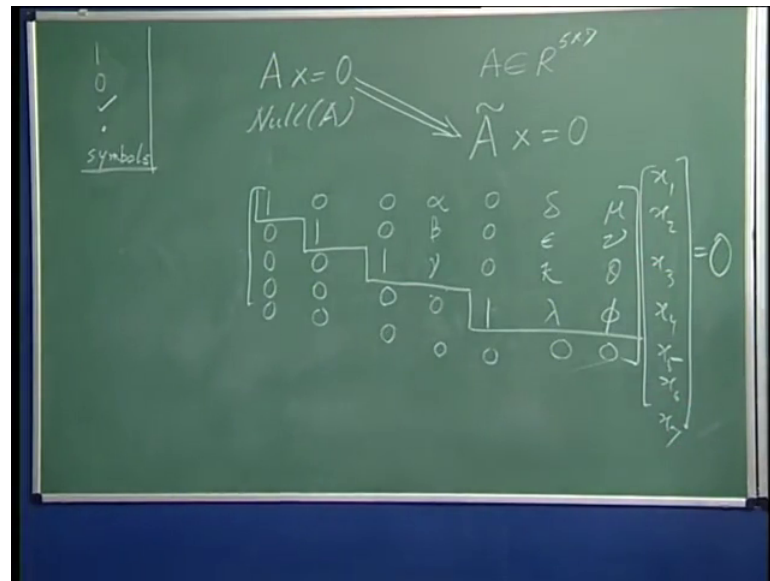 1
0
✓
.
symbols
Ax = 0
Null(A)
A ∈ R^5×7
Ã x = 0
1 0 0 α 0 δ μ
0 1 0 β 0 ε ν
0 0 1 γ 0 κ θ
0 0 0 0 1 λ φ
0 0 0 0 0 0 0
x₁
x₂
x₃
x₄
x₅
x₆
x₇
= 0